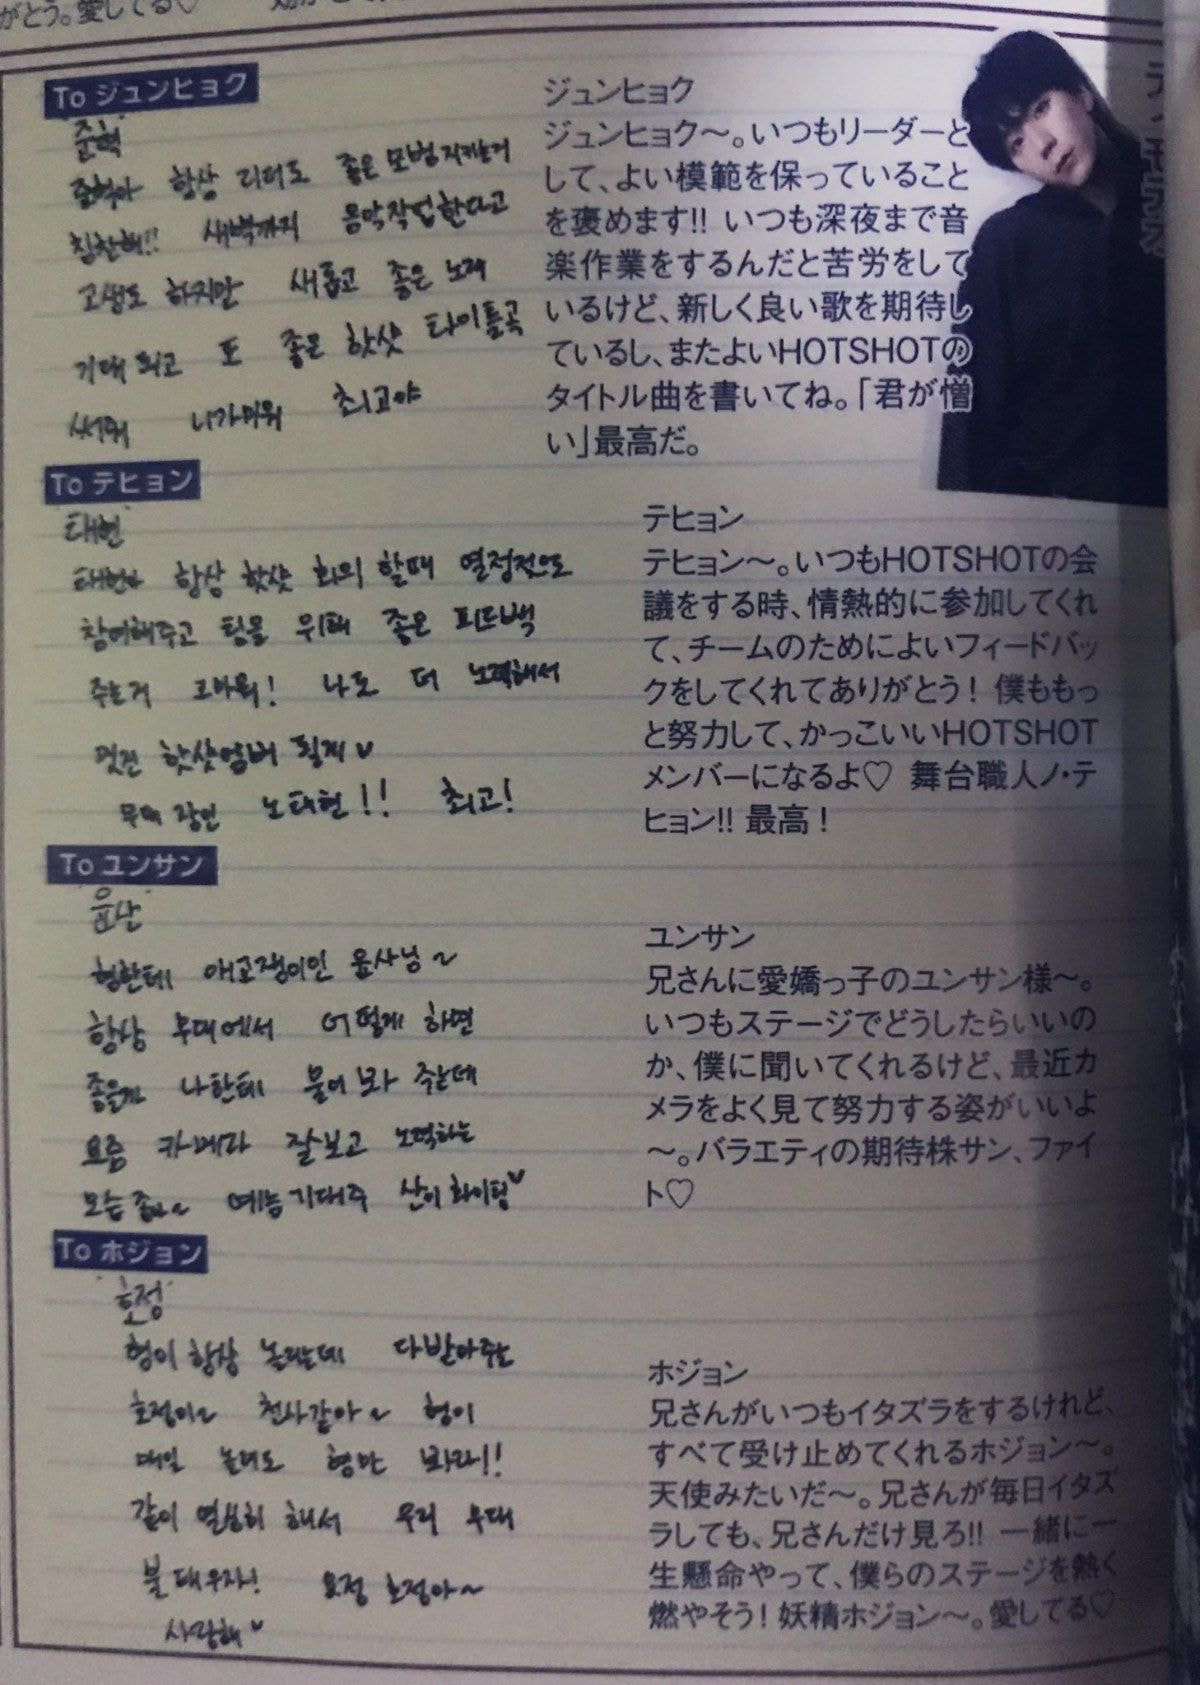 がとう。愛してる♡
To ジュンヒョク
준혁
준혁아 항상 리더로 좋은 모범 지키는거
칭찬해!! 새벽까지 음악작업한다고
고생도 하지만 새롭고 좋은 노래
기대되고 또 좋은 핫샷 타이틀곡
써줘 니가미워 최고야
ジュンヒョク
ジュンヒョク〜。いつもリーダーと
して、よい模範を保っていること
を褒めます!! いつも深夜まで音
楽作業をするんだと苦労をして
いるけど、新しく良い歌を期待し
ているし、またよいHOTSHOTの
タイトル曲を書いてね。「君が憎
い」最高だ。
To テヒョン
태현
태현아 항상 핫샷 회의 할때 열정적으로
참여해주고 팀을 위해 좋은 피드백
주는거 고마워! 나도 더 노력해서
멋진 핫샷멤버 될게♡
무대 장인 노태현!! 최고!
テヒョン
テヒョン〜。いつもHOTSHOTの会
議をする時、情熱的に参加してくれ
て、チームのためによいフィードバッ
クをしてくれてありがとう! 僕ももっ
と努力して、かっこいいHOTSHOT
メンバーになるよ♡ 舞台職人ノ・テ
ヒョン!! 最高!
To ユンサン
윤산
형한테 애교쟁이인 윤산님~
항상 무대에서 어떻게 하면
좋을까 나한테 물어봐 주는데
요즘 카메라 잘보고 노력하는
모습 좋아~ 예능기대주 산이 화이팅♡
ユンサン
兄さんに愛嬌っ子のユンサン様〜。
いつもステージでどうしたらいいの
か、僕に聞いてくれるけど、最近カ
メラをよく見て努力する姿がいいよ
〜。バラエティの期待株サン、ファイ
ト♡
To ホジョン
호정
형이 항상 놀리는데 다받아주는
호정이~ 천사같아~ 형이
매일 놀려도 형만 봐라!!
같이 열심히 해서 우리 무대
불태우자! 요정 호정아~
사랑해♡
ホジョン
兄さんがいつもイタズラをするけれど、
すべて受け止めてくれるホジョン〜。
天使みたいだ〜。兄さんが毎日イタズ
ラしても、兄さんだけ見ろ!! 一緒に一
生懸命やって、僕らのステージを熱く
燃やそう! 妖精ホジョン〜。愛してる♡